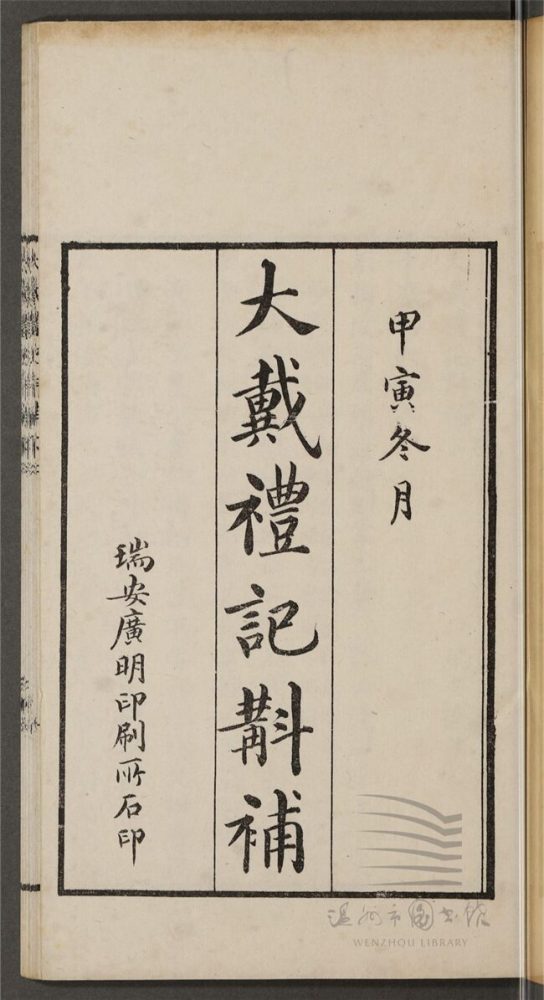 甲寅冬月
大戴禮記斠補
瑞安廣明印刷所石印
温州市图书馆
WENZHOU LIBRARY